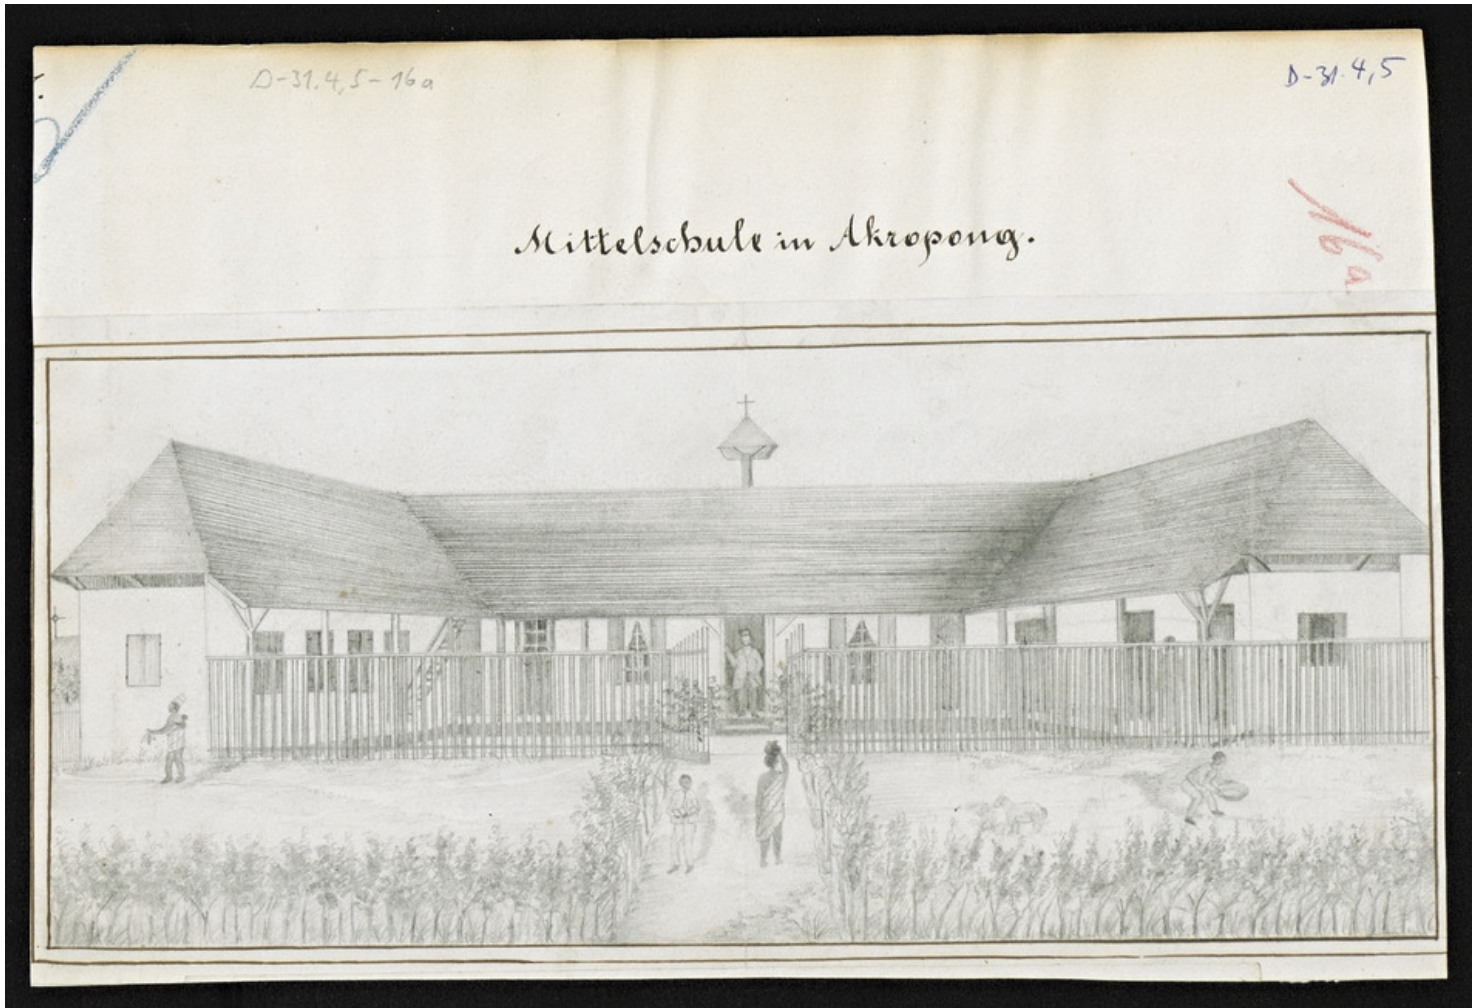 D-31.4,5-16a
D-31.4,5
16a
Mittelschule in Akropong.